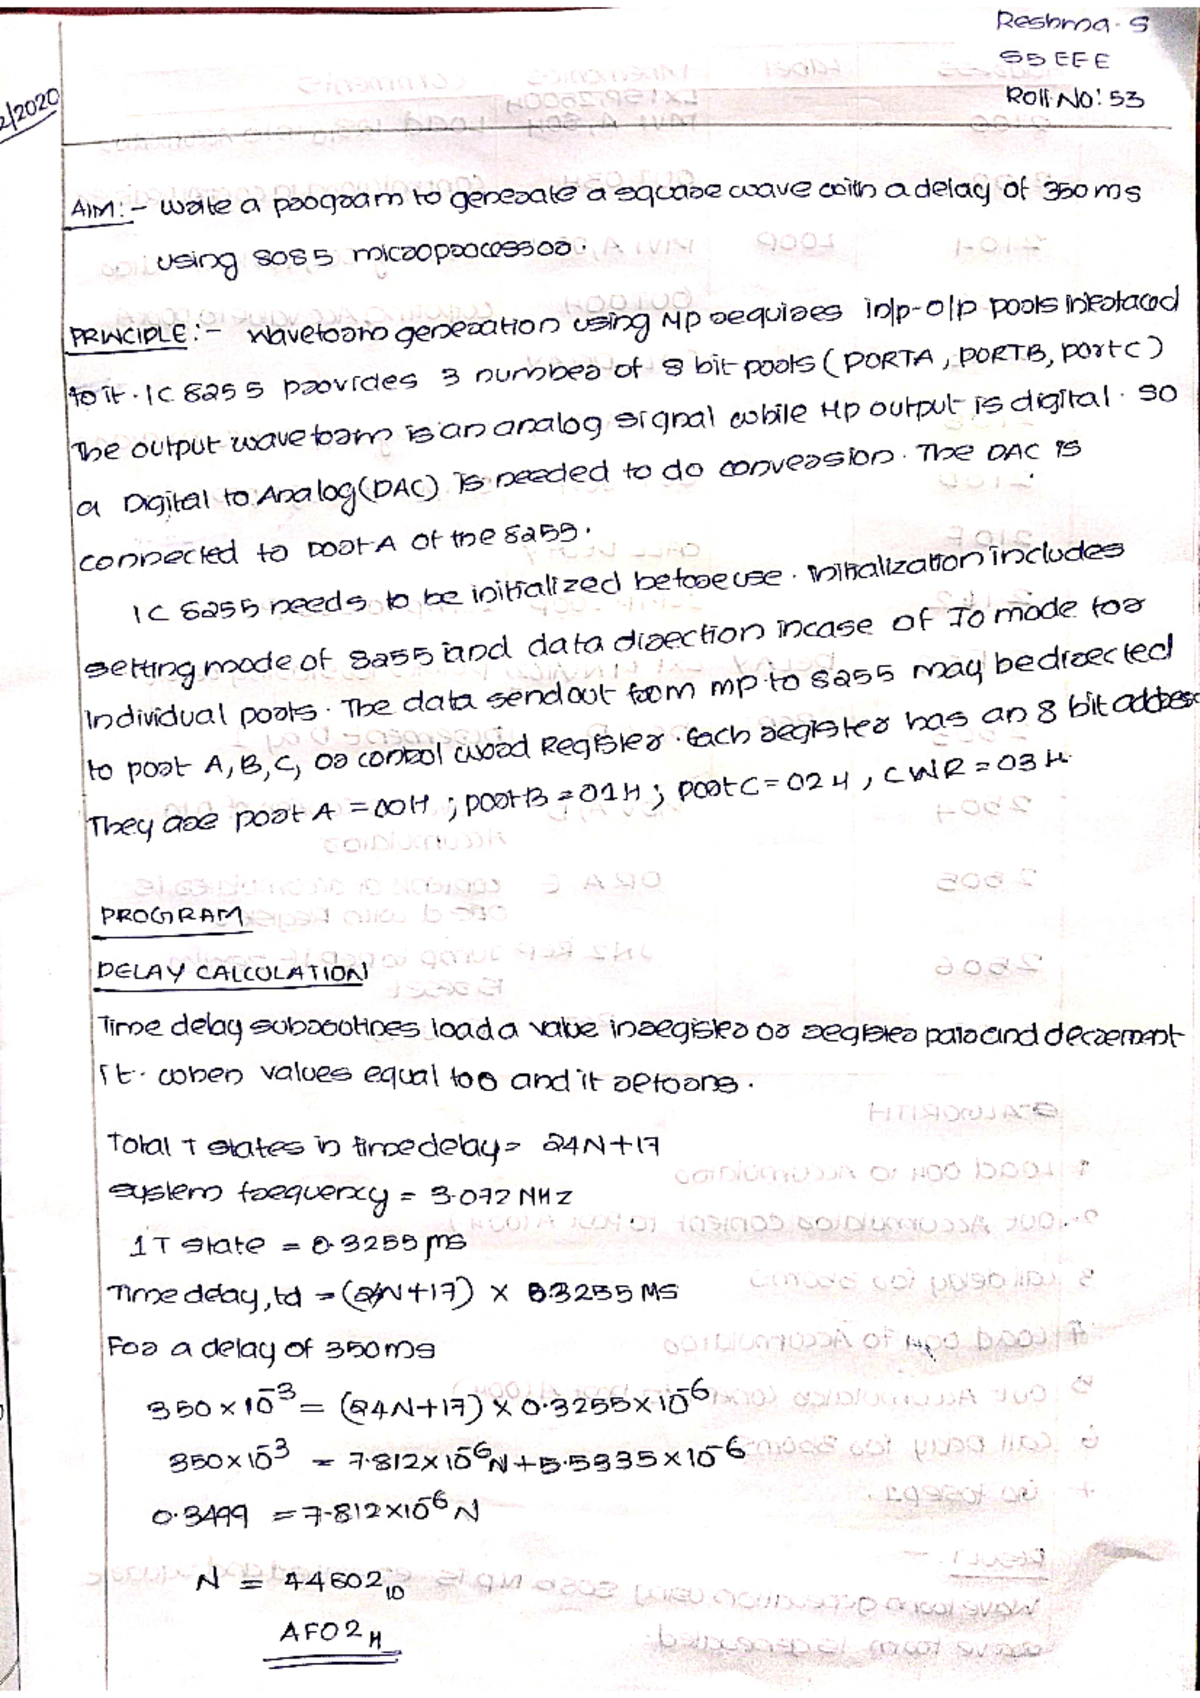 Reshma. S
S5 EEE
Roll No: 53
2/2020
AIM:- Write a program to generate a square wave with a delay of 350 ms
using 8085 microprocessor.
PRINCIPLE:- Waveform generation using Mp requires i/p-o/p ports interfaced
to it. IC 8255 provides 3 number of 8 bit ports (PORTA, PORTB, Port C)
The output waveform is an analog signal while Mp output is digital. So
a Digital to Analog (DAC) is needed to do conversion. The DAC is
connected to port A of the 8255.
IC 8255 needs to be initialized before use. Initialization includes
setting mode of 8255 and data direction incase of IO mode for
individual ports. The data send out from mp to 8255 may be directed
to port A, B, C, or control word Register. Each register has an 8 bit address
They are port A = 00H ; port B = 01H ; port C = 02H , CWR = 03H.
PROGRAM
DELAY CALCULATION
Time delay subroutines load a value in register or register pair and decrement
it. when values equal to 0 and it returns.
Total T states in time delay = 24N+17
System frequency = 3.072 MHZ
1T state = 0.3255 μs
Time delay, td = (24N+17) × 0.3255 MS
For a delay of 350ms
350×10⁻³ = (24N+17) × 0.3255×10⁻⁶
350×10⁻³ = 7.812×10⁻⁶N + 5.5335×10⁻⁶
0.3499 = 7.812×10⁻⁶ N
N = 44802₁₀
AF02H